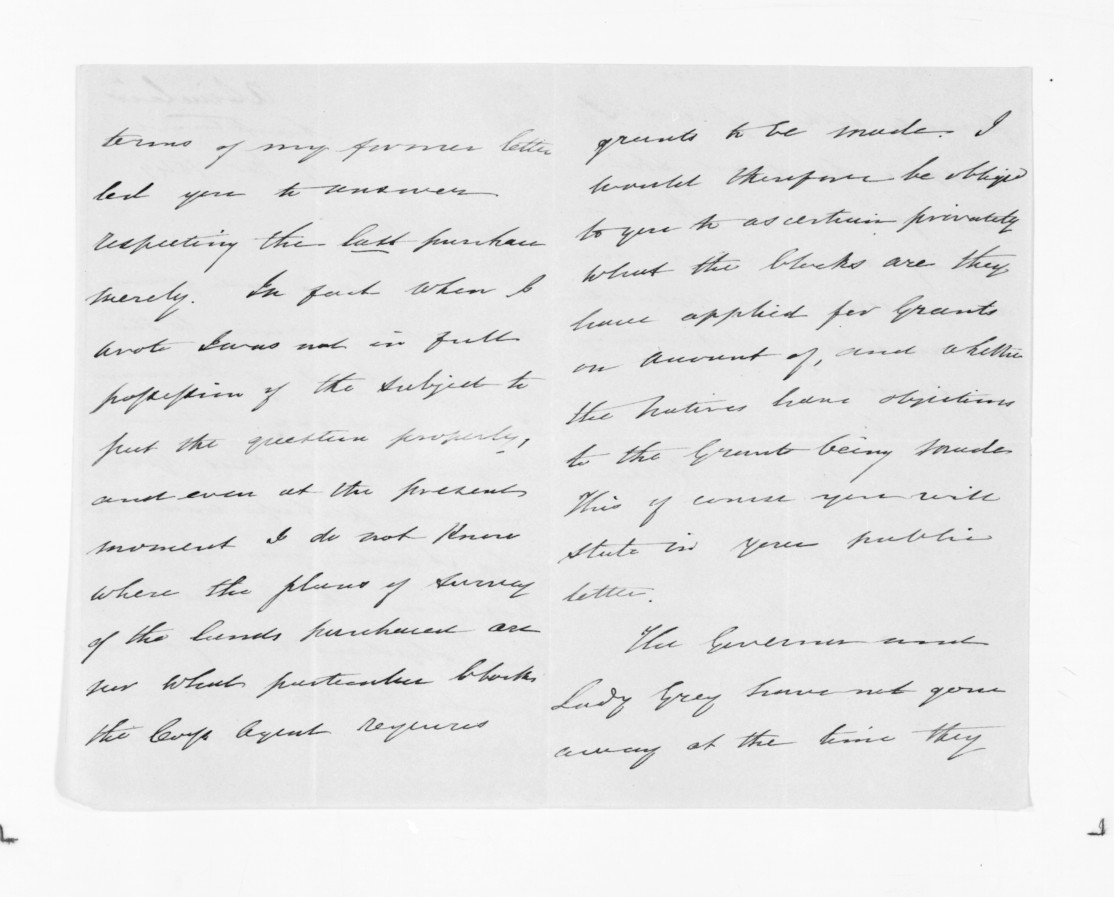 terms of my former letter
led you to answer
respecting the last purchase
merely. In fact when I
wrote I was not in full
possession of the subject to
put the question properly,
and even at the present
moment I do not know
where the plans of survey
of the lands purchased are
nor what particular blocks
the Coys Agent requires
grants to be made. I
would therefore be obliged
to you to ascertain privately
what the blocks are they
have applied for Grants
on account of, and whether
the Natives have objections
to the Grants being made
This of course you will
state in your public
letter.
The Governor and
Lady Grey have not gone
away at the time they